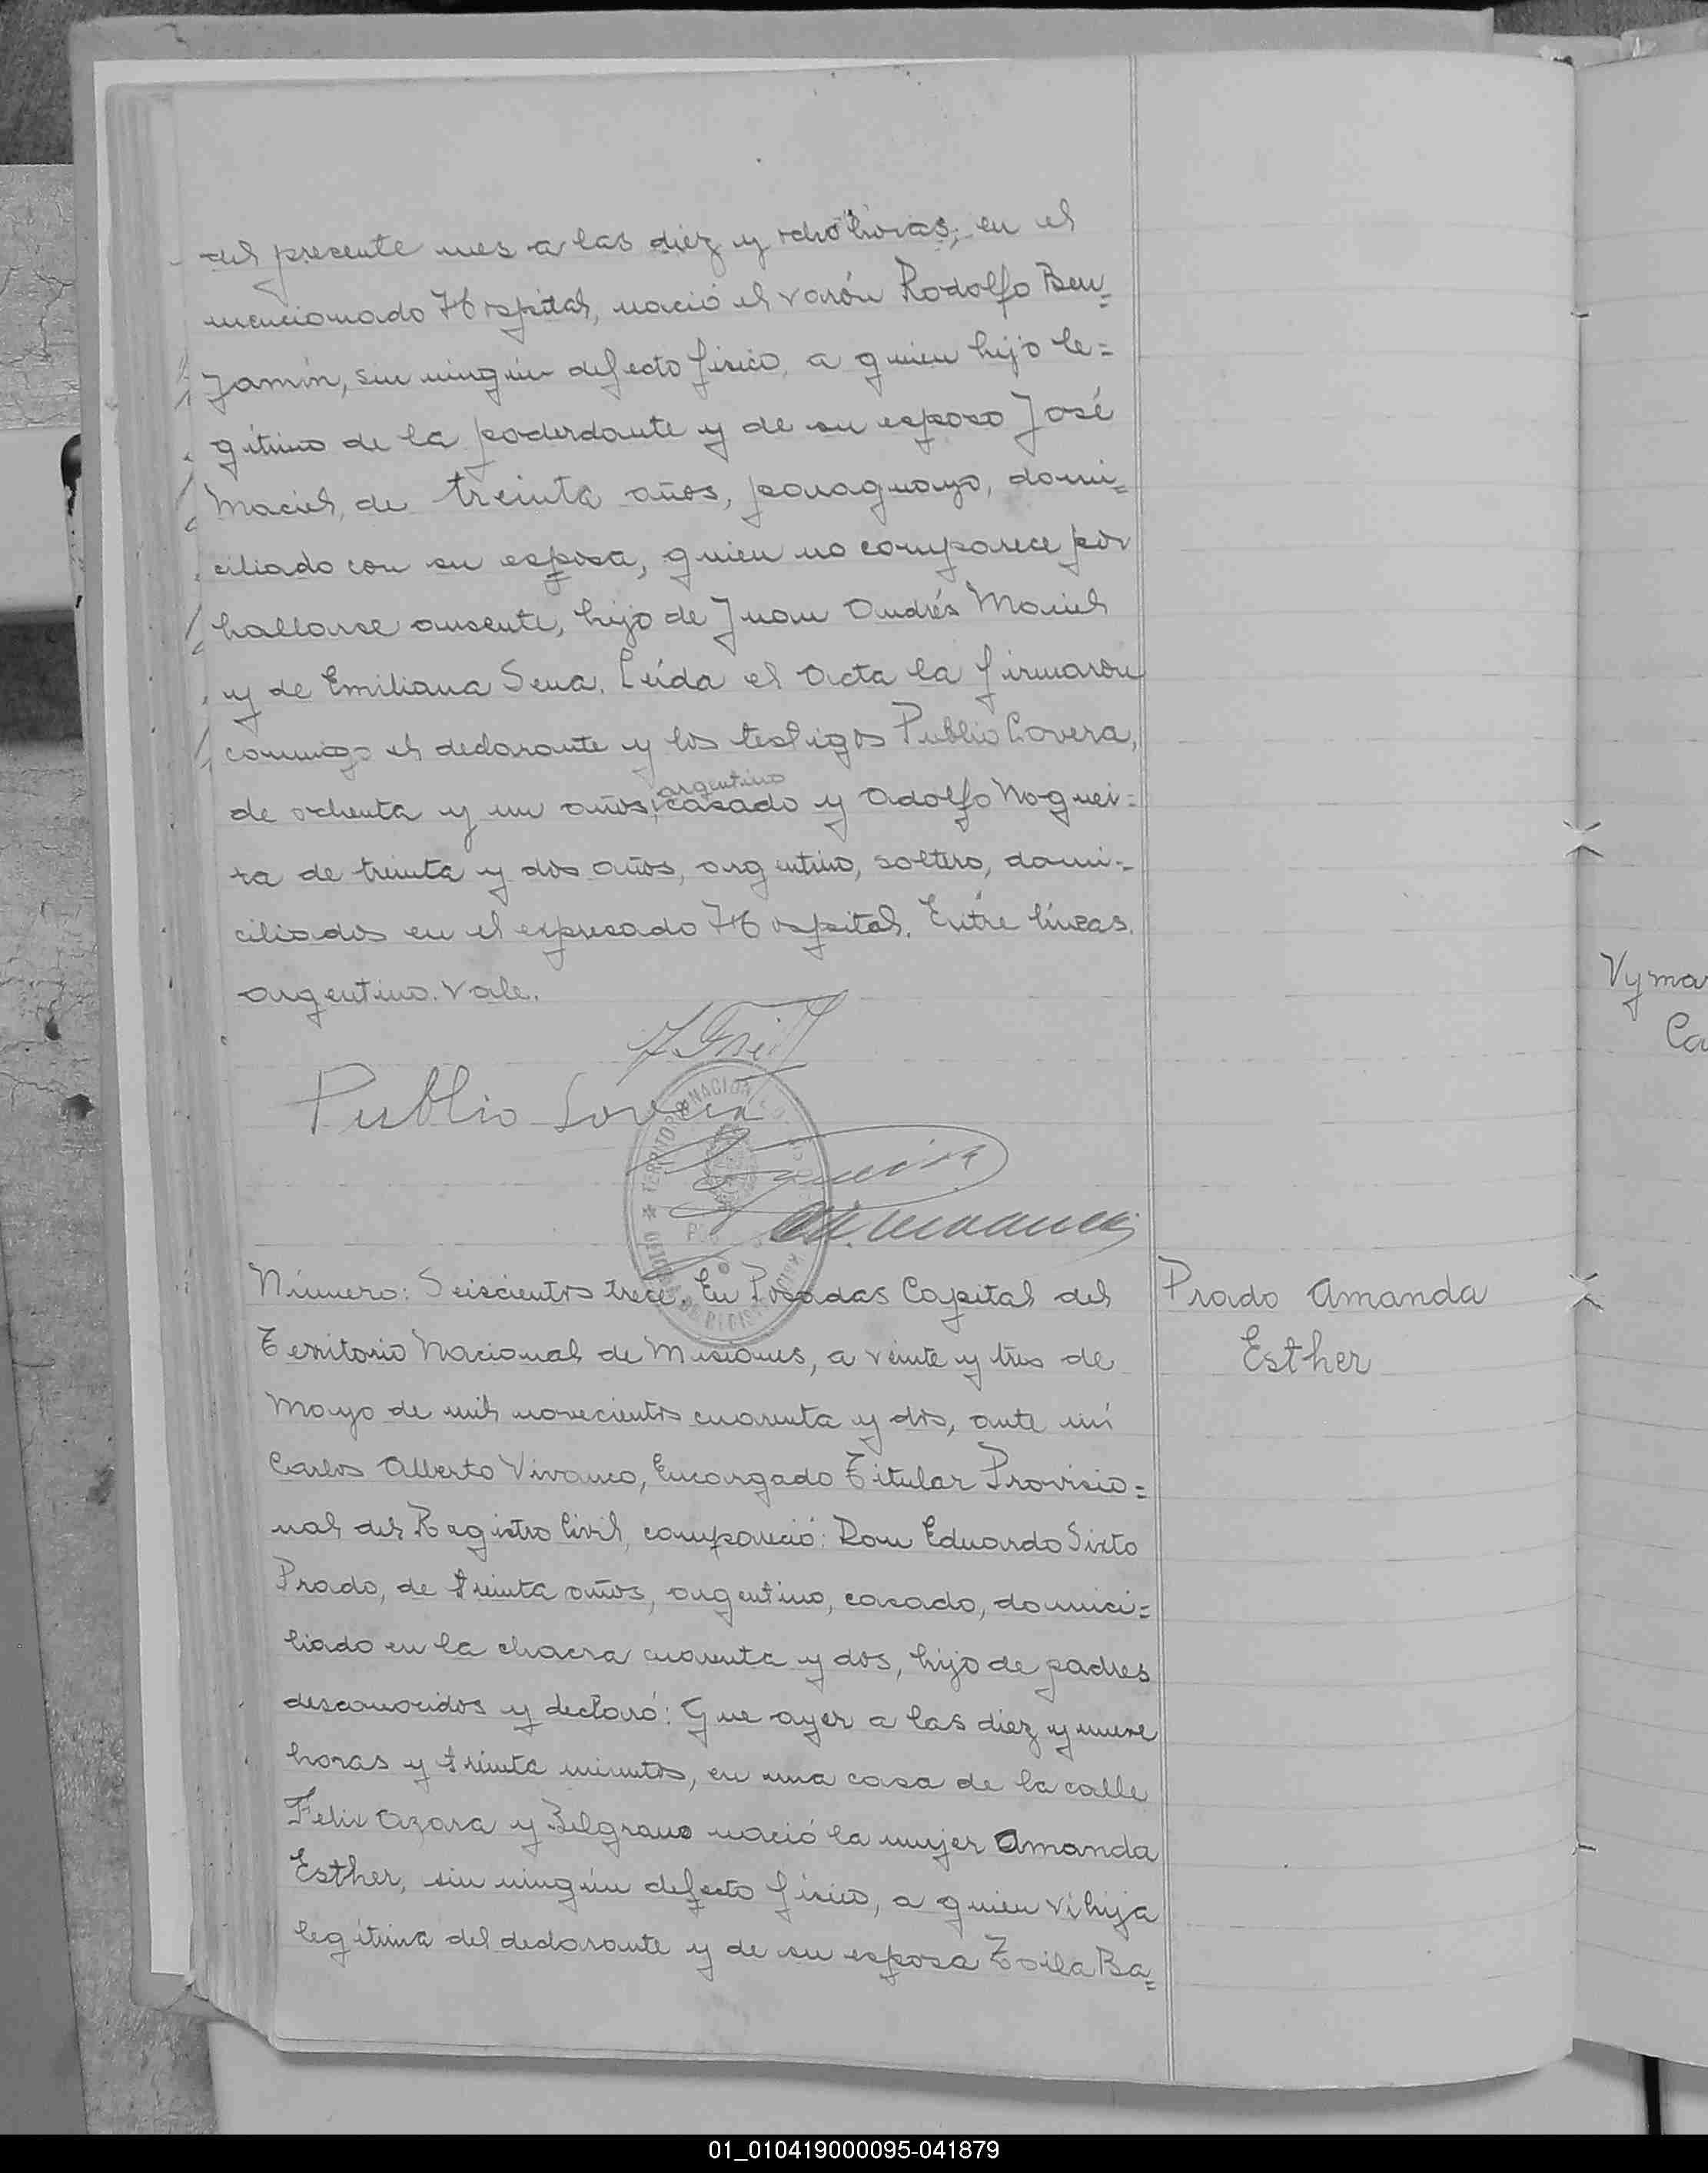 del presente mes a las diez y ocho horas, en el
mencionado Hospital, nació el varón Rodolfo Ben=
jamín, sin ningún defecto físico, a quien hijo le=
gítimo de la poderdante y de su esposo José
Maciel, de treinta años, paraguayo, domi=
ciliado con su esposa, quien no comparece por
hallarse ausente, hijo de Juan Andrés Maciel
y de Emiliana Sena. Leída el Acta la firmaron
conmigo el declarante y los testigos Publio Lovera,
argentino
de ochenta y un años, casado y Adolfo Noguei=
ra de treinta y dos años, argentino, soltero, domi=
ciliados en el expresado Hospital. Entre líneas.
argentino. Vale.
Publio Lovera
Número: Seiscientos trece. En Posadas Capital del
Territorio Nacional de Misiones, a veinte y tres de
Mayo de mil novecientos cuarenta y dos, ante mí
Carlos Alberto Vivanco, Encargado Titular Provisio=
nal del Registro Civil, compareció: Don Eduardo Sixto
Prado, de treinta años, argentino, casado, domici=
liado en la chacra cuarenta y dos, hijo de padres
desconocidos y declaró: Que ayer a las diez y nueve
horas y treinta minutos, en una casa de la calle
Felix Azara y Belgrano nació la mujer Amanda
Esther, sin ningún defecto físico, a quien vi hija
legítima del declarante y de su esposa Zoila Ba=
Prado Amanda
Esther
Vyma
Ca
TERRITORIO NACIONAL
01_010419000095-041879